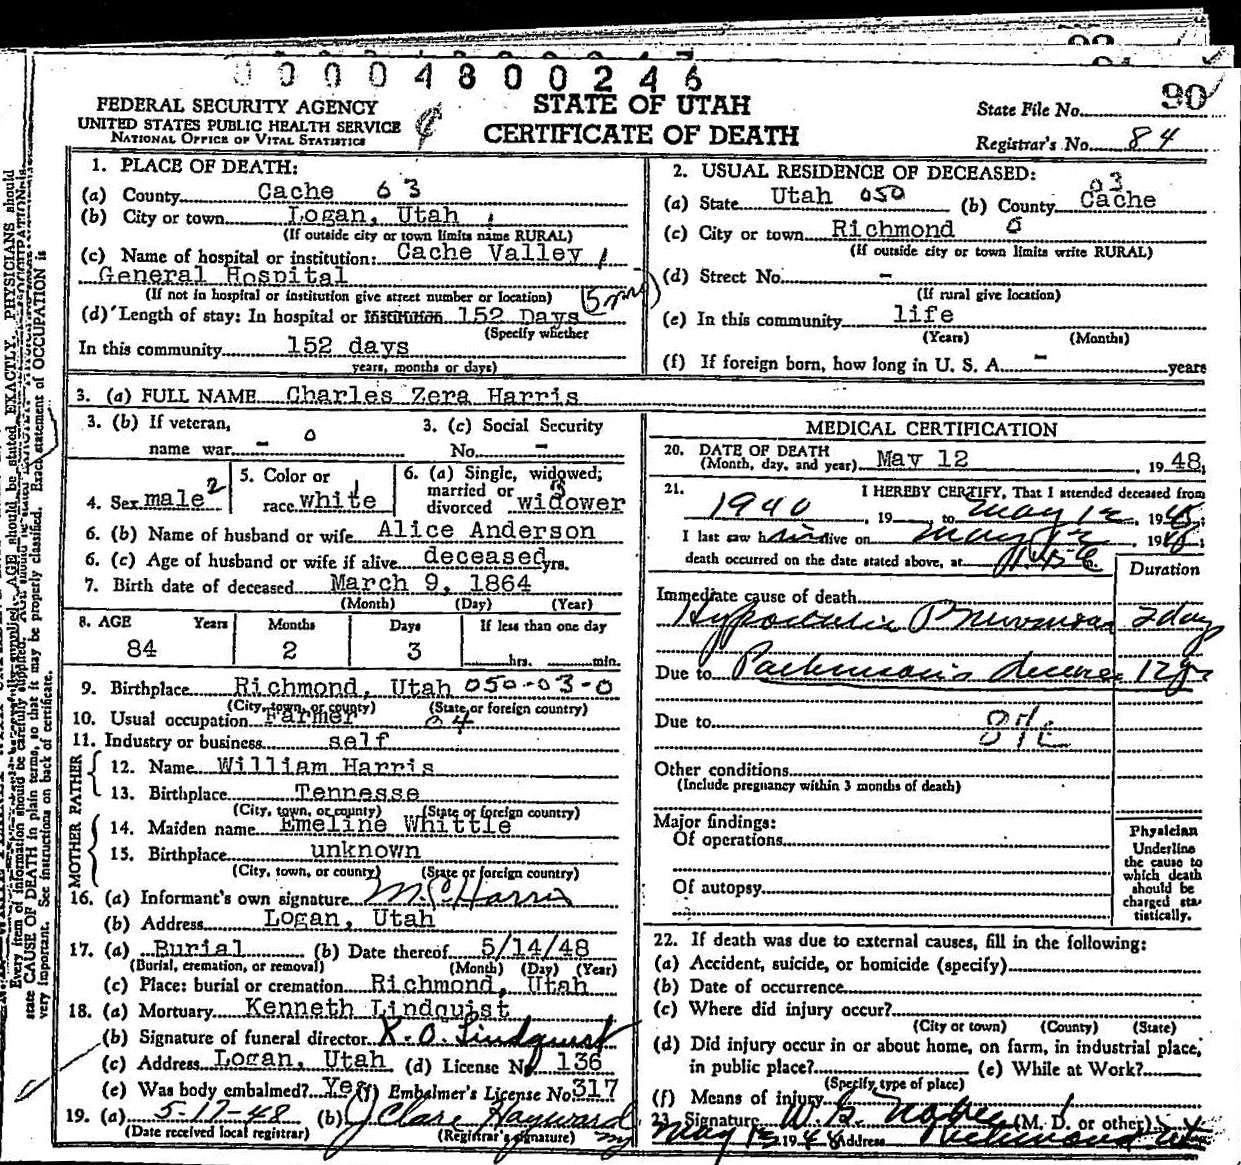 0000 4 8 0 0 2 4 6
FEDERAL SECURITY AGENCY
UNITED STATES PUBLIC HEALTH SERVICE
NATIONAL OFFICE OF VITAL STATISTICS
STATE OF UTAH
CERTIFICATE OF DEATH
State File No. 90
Registrar's No. 84
1. PLACE OF DEATH:
(a) County Cache 63
(b) City or town Logan, Utah
(If outside city or town limits name RURAL)
(c) Name of hospital or institution: Cache Valley
General Hospital
(If not in hospital or institution give street number or location)
(d) Length of stay: In hospital or institution 152 Days
(Specify whether
In this community 152 days
years, months or days)
2. USUAL RESIDENCE OF DECEASED:
(a) State Utah 050 (b) County Cache 03
(c) City or town Richmond 0
(If outside city or town limits write RURAL)
(d) Street No. -
(If rural give location)
(e) In this community life
(Years) (Months)
(f) If foreign born, how long in U. S. A. - years
3. (a) FULL NAME Charles Zera Harris
3. (b) If veteran, 3. (c) Social Security
name war - 0 No. -
4. Sex male 2
5. Color or
race white
6. (a) Single, widowed;
married or
divorced widower
6. (b) Name of husband or wife Alice Anderson
6. (c) Age of husband or wife if alive deceased yrs.
7. Birth date of deceased March 9, 1864
(Month) (Day) (Year)
8. AGE Years Months Days If less than one day
84 2 3 hrs. min.
9. Birthplace Richmond, Utah 050-03-0
(City, town, or county) (State or foreign country)
10. Usual occupation Farmer 04
11. Industry or business self
FATHER
12. Name William Harris
13. Birthplace Tennesse
(City, town, or county) (State or foreign country)
MOTHER
14. Maiden name Emeline Whittle
15. Birthplace unknown
(City, town, or county) (State or foreign country)
16. (a) Informant's own signature Harris
(b) Address Logan, Utah
17. (a) Burial (b) Date thereof 5/14/48
(Burial, cremation, or removal) (Month) (Day) (Year)
(c) Place: burial or cremation Richmond, Utah
18. (a) Mortuary Kenneth Lindquist
(b) Signature of funeral director K. O. Lindquist
(c) Address Logan, Utah (d) License No 136
(e) Was body embalmed? Yes (f) Embalmer's License No 317
19. (a) 5-17-48 (b) J Clare Hayward
(Date received local registrar) (Registrar's signature)
MEDICAL CERTIFICATION
20. DATE OF DEATH
(Month, day, and year) May 12, 1948
21. I HEREBY CERTIFY, That I attended deceased from
1940, 19 to May 12, 1948;
I last saw him alive on May 12, 1948;
death occurred on the date stated above, at
Duration
Immediate cause of death
Hypostatic Pneumonia 2 days
Due to Parkinson's disease 12 yr
Due to
Other conditions
(Include pregnancy within 3 months of death)
Major findings:
Of operations
Of autopsy
Physician
Underline
the cause to
which death
should be
charged sta-
tistically.
22. If death was due to external causes, fill in the following:
(a) Accident, suicide, or homicide (specify)
(b) Date of occurrence
(c) Where did injury occur?
(City or town) (County) (State)
(d) Did injury occur in or about home, on farm, in industrial place,
in public place? (e) While at Work?
(Specify type of place)
(f) Means of injury
23. Signature (M. D. or other)
May 13 1948 Address Richmond Ut